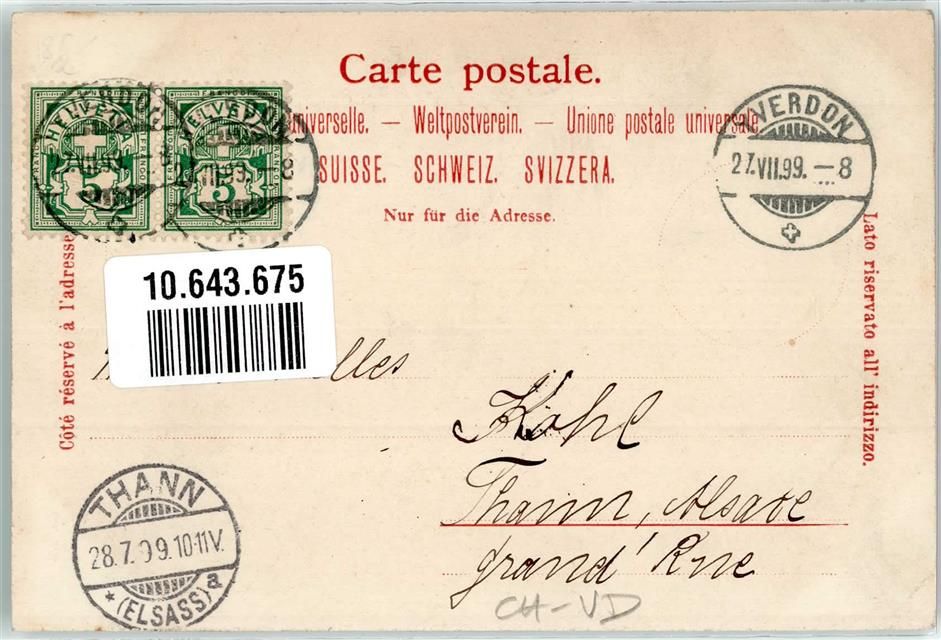 Carte postale.
universelle. — Weltpostverein. — Unione postale universale
SUISSE. SCHWEIZ. SVIZZERA.
Nur für die Adresse.
HELVETIA HELVETIA
5 5
YVERDON
27.VII.99. — 8
10.643.675
Côté réservé à l'adresse
Lato riservato all' indirizzo.
elles
Kohl
Thann, Alsace
grand' Rue
THANN
28.7.99.10-11V.
*(ELSASS)a
CH-VD